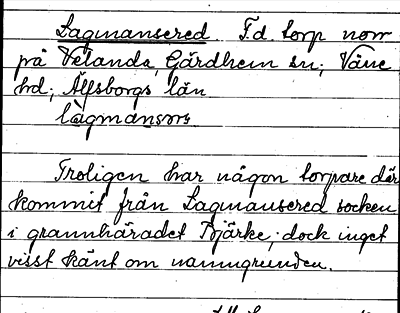 Lagmansered F.d. torp norr
på Velanda, Gärdhem sn; Väne
hd; Älfsborgs län
lagmansörs
Troligen har någon torpare där
kommit från Lagmansered socken
i grannhäradet Bjärke; dock inget
visst känt om namngrunden.